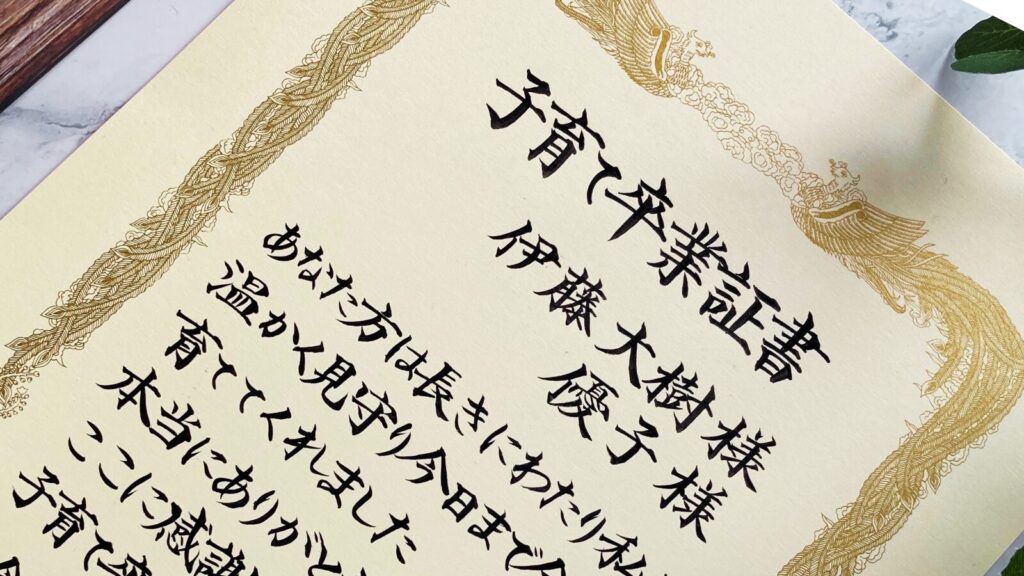 子育て卒業証書
伊藤 大樹様
優子様
あなた方は長きにわたり私
温かく見守り今日まで
育ててくれました
本当にありがと
ここに感謝
子育て卒